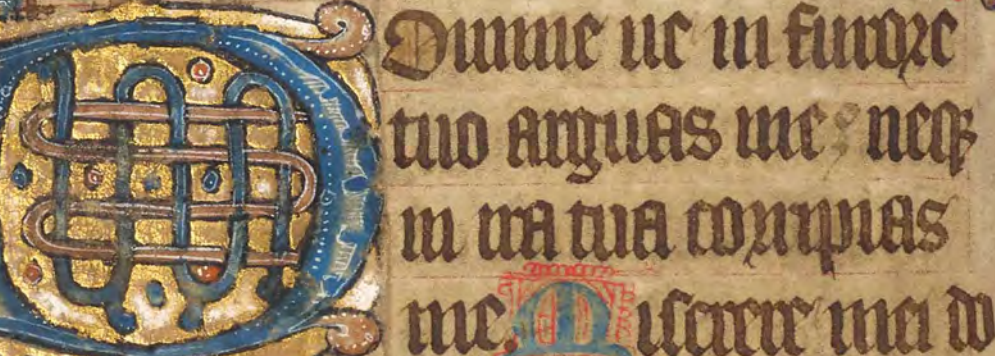 Domine ne in furore
tuo arguas me: neq
in ira tua corripias
me. Miserere mei do